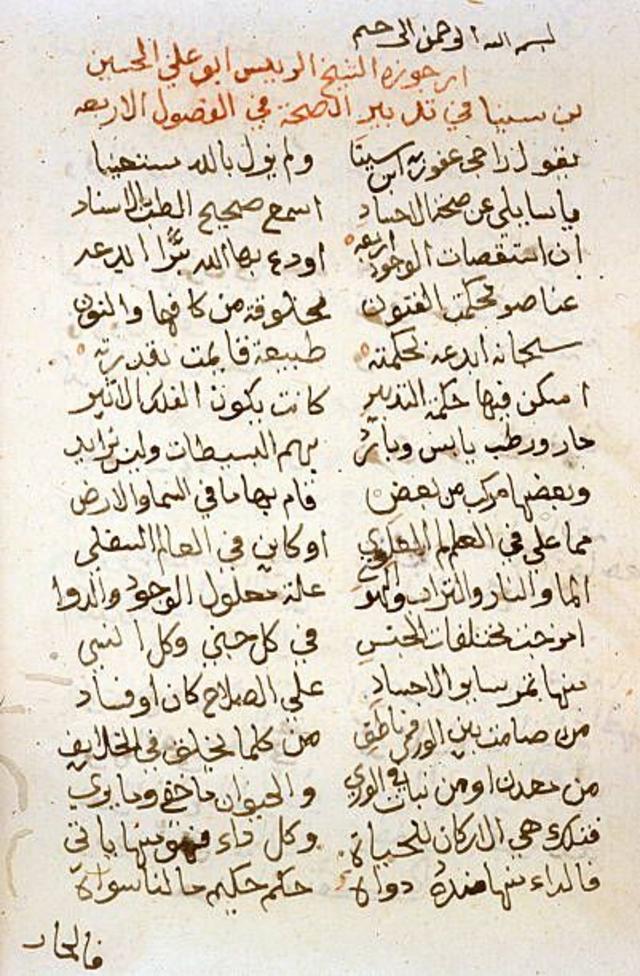 بسم الله الرحمن الرحيم
ارجوزة الشيخ الرييس ابو علي الحسين
بن سينا في تدبير الصحة في الفصول الاربعه
يقول راجي عفو ربه ابن سينا ولم يزل بالله مستعينا
يا سايلي عن صحة الاجساد اسمع صحيح الطب بالاسناد
ان استقصات الوجود اربعه اودع بها الله سرا ابدعه
عناصر بحكمة الفنون مخلوقة من كافها والنون
سبحانه ابدعه بحكمته طبيعة قامت بقدرته
اسكن فيها حكمة التدبير كانت بكون الفلك الاثير
حار ورطب يابس وبارد بهم البسيطات ولبس تزايد
وبعضها مركب من بعض قام بها ما في السما والارض
مما علي في العلم العلوي او كاين في العالم السفلي
الما والنار والتراب والهوا علة معلول الوجود والدوا
امزجت بمختلفات الجنس في كل جني وكل انسي
منها تمر ساير الاجساد علي الصلاح كان او فساد
من صامت بين الوري وناطق من كلما يخلق في الخلايق
من معدن او من نبات في الوري والحيوان ما خفي وما يري
فتلك هي الاركان للحياة وكل داء فهو منها ياتي
فالداء منها ضده دواه حكم حكيم ما لنا سواه
فالحار